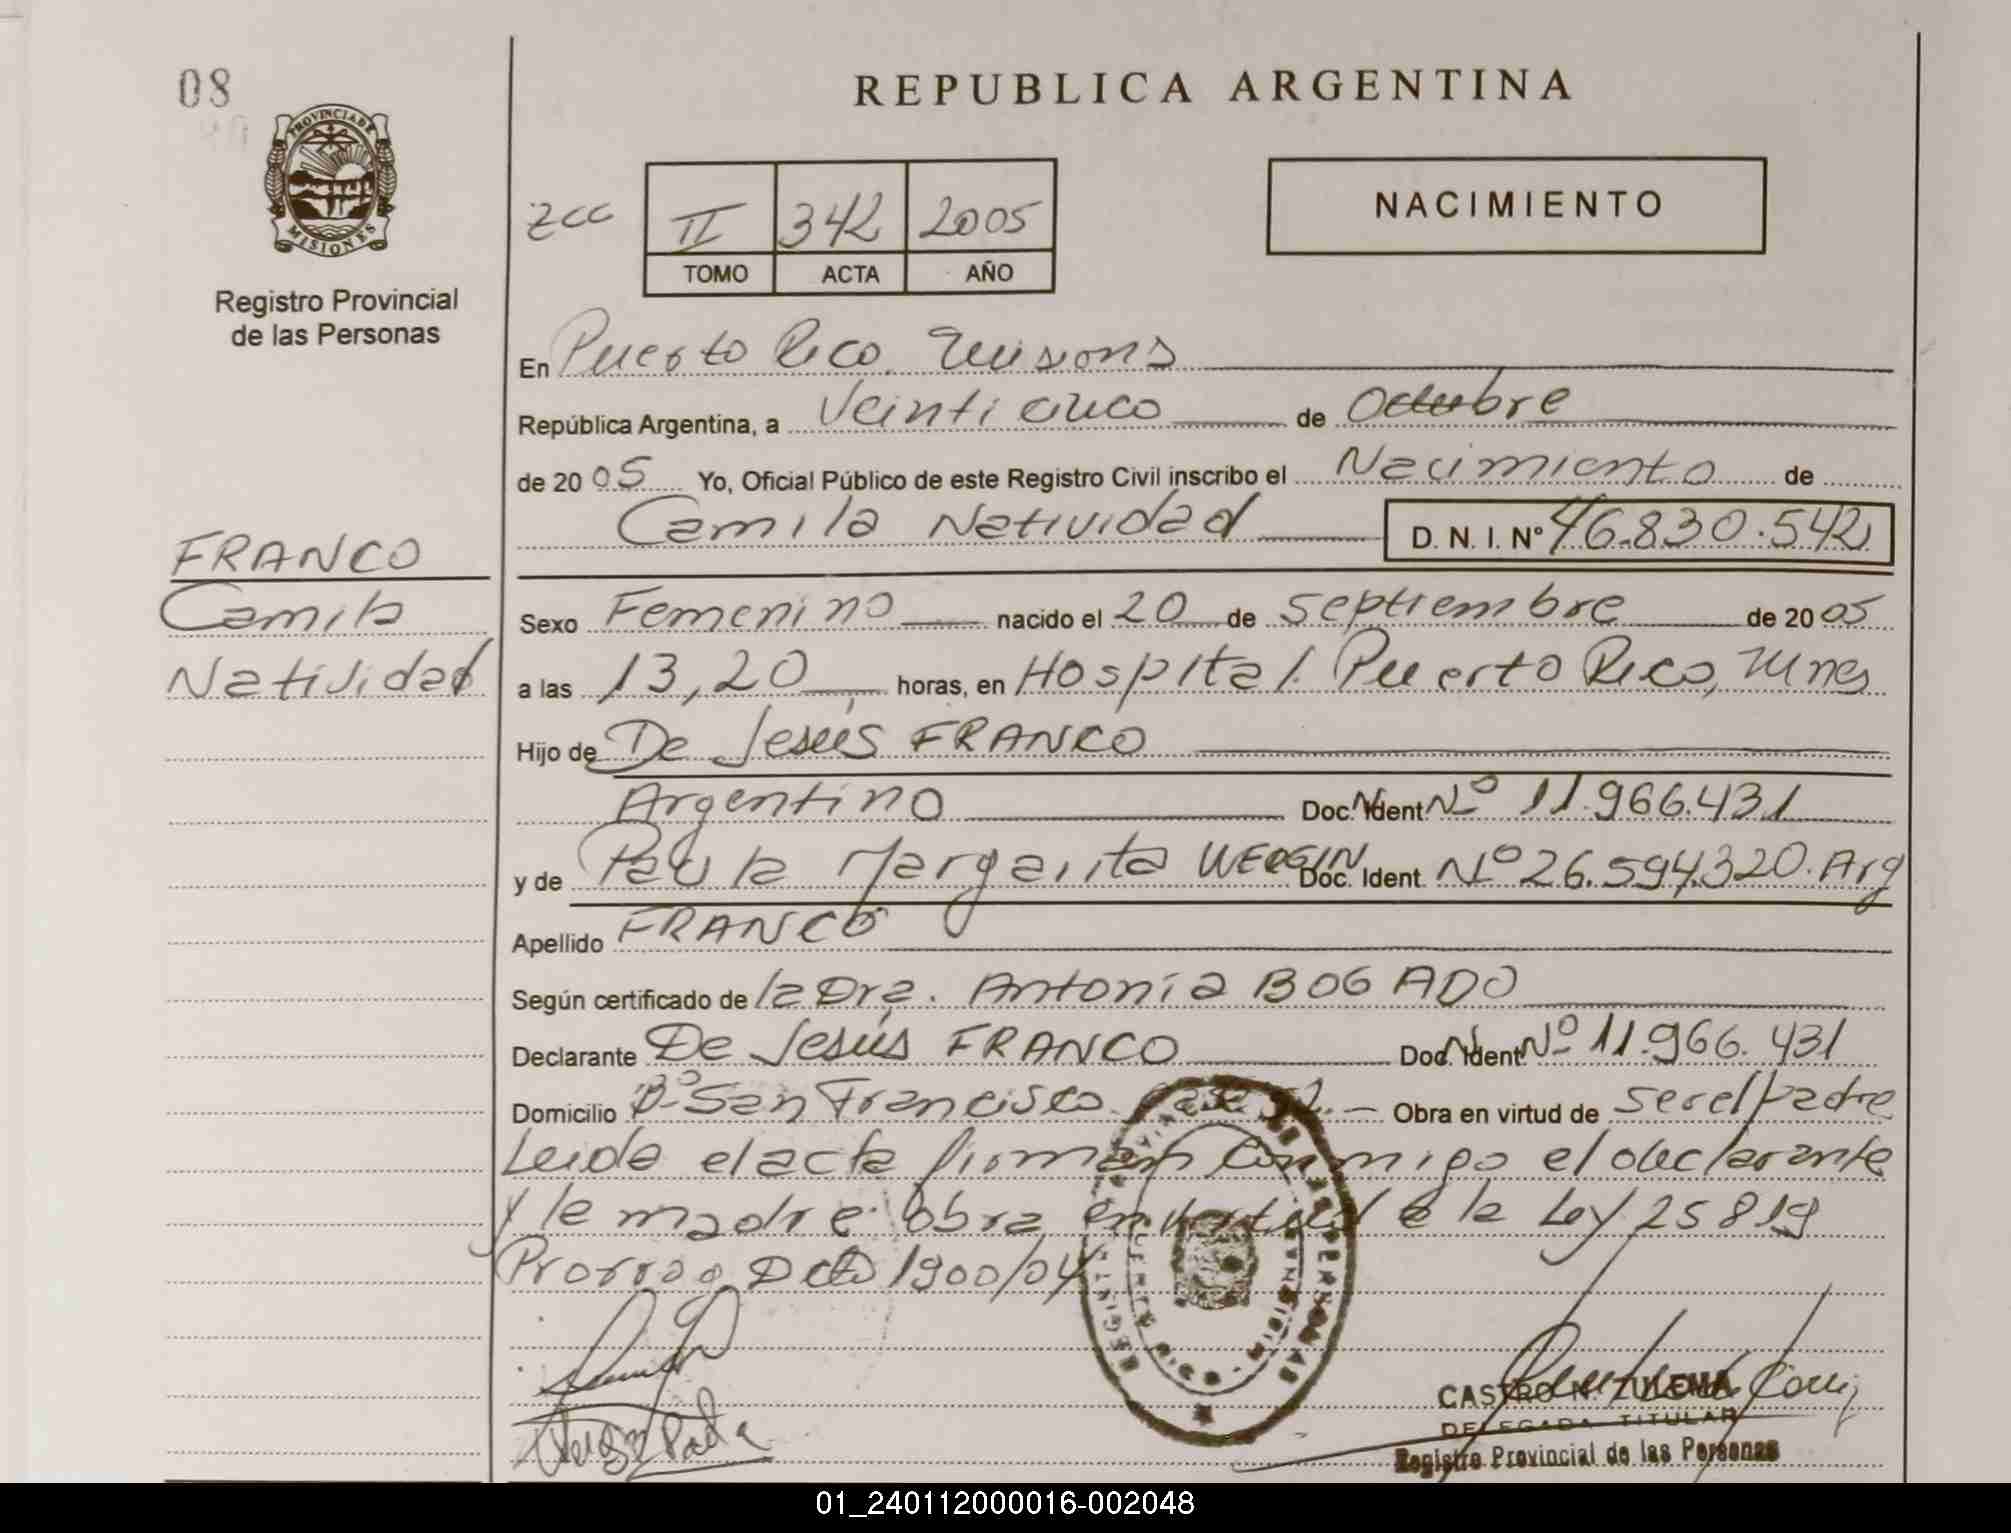 08
PROVINCIA DE
MISIONES
Registro Provincial
de las Personas
REPUBLICA ARGENTINA
zcc II 342 2005
TOMO ACTA AÑO
NACIMIENTO
En Puerto Rico. Misiones
República Argentina, a Veinticinco de Octubre
de 20 05 Yo, Oficial Público de este Registro Civil inscribo el Nacimiento de
Camila Natividad D. N. I. Nº 46.830.542
FRANCO
Camila
Natividad
Sexo Femenino nacido el 20 de Septiembre de 20 05
a las 13,20 horas, en Hospital. Puerto Rico, Mnes
Hijo de De Jesús FRANCO
Argentino Doc. Ident Nº 11.966.431
y de Paula Margarita Doc. Ident. Nº 26.594.320. Arg
Apellido FRANCO
Según certificado de la Dra. Antonia BOGADO
Declarante De Jesús FRANCO Doc. Ident Nº 11.966.431
Domicilio Bº San Francisco Obra en virtud de ser el padre
Leida el acta firman conmigo el declarante
y la madre. Obra en virtud de la Ley 25819
Prorrog Dcto 1900/04
CASTRO N. ZULEMA
DELEGADA TITULAR
Registro Provincial de las Personas
01_240112000016-002048